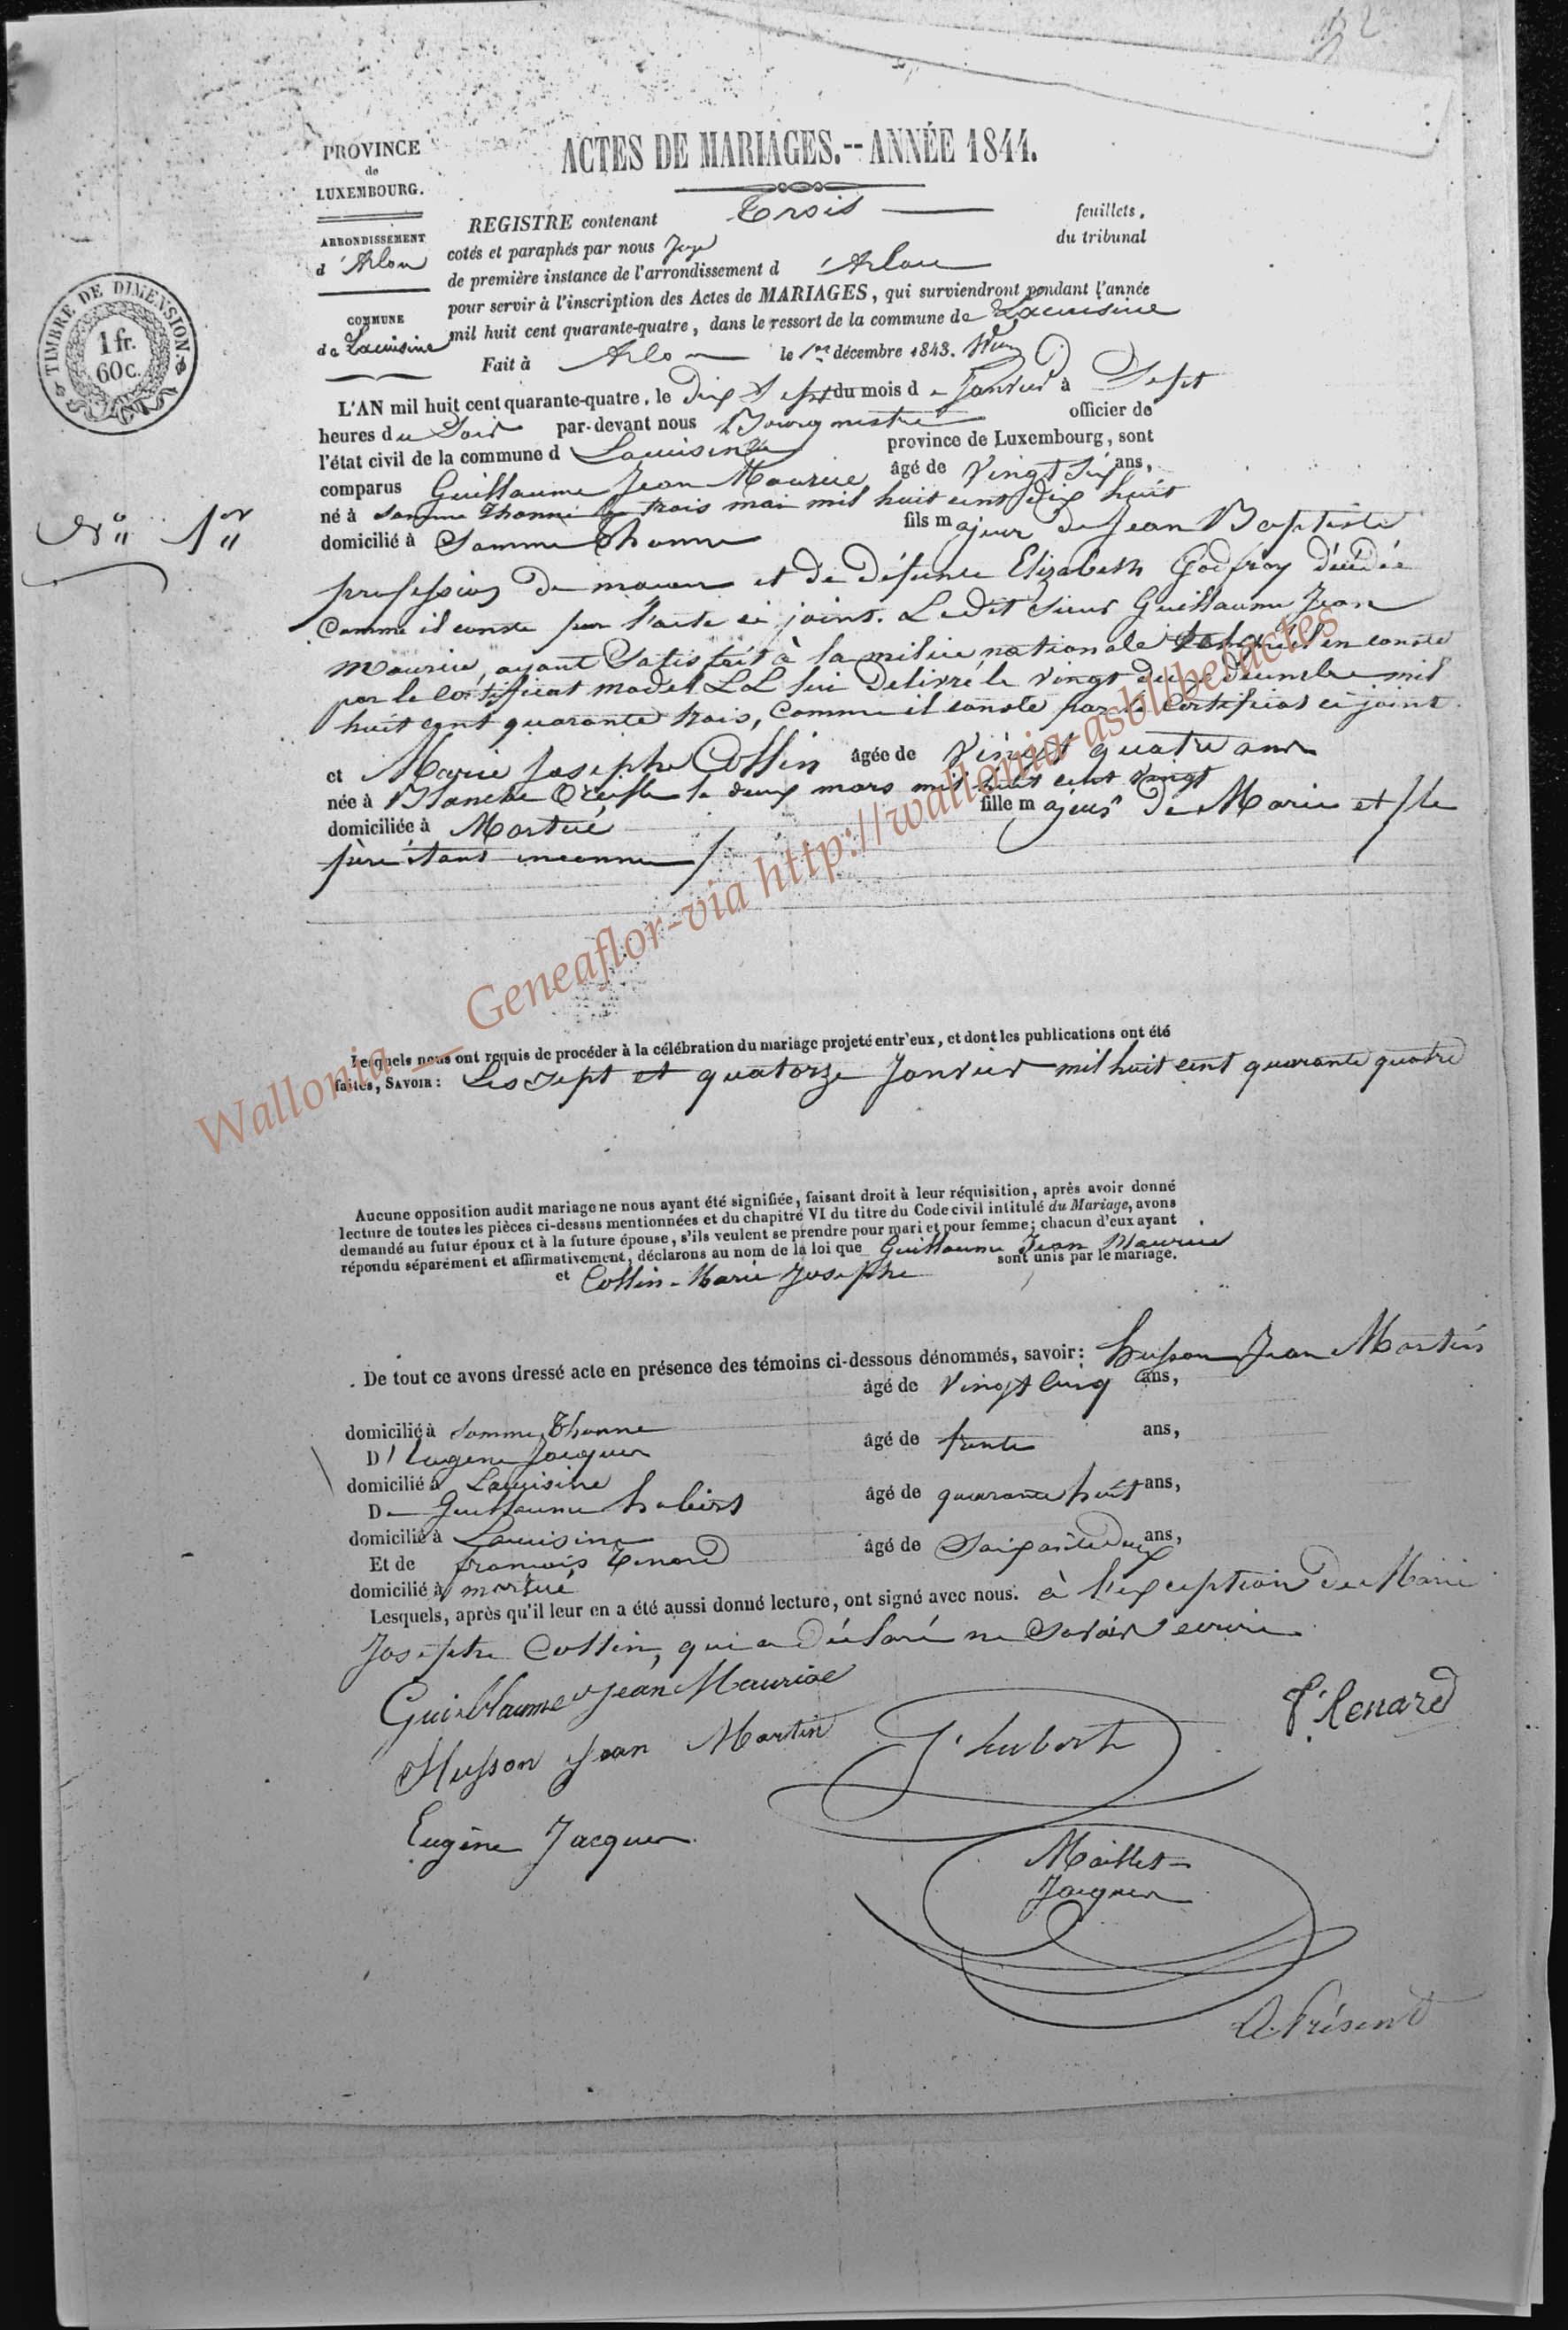 ACTES DE MARIAGES.--ANNÉE 1844.
PROVINCE
de
LUXEMBOURG.
ARRONDISSEMENT
d'Arlon
COMMUNE
de Lacuisine
TIMBRE DE DIMENSION
1 fr.
60 c.
REGISTRE contenant Trois feuillets,
cotés et paraphés par nous Juge du tribunal
de première instance de l'arrondissement d'Arlon
pour servir à l'inscription des Actes de MARIAGES, qui surviendront pendant l'année
mil huit cent quarante-quatre, dans le ressort de la commune de Lacuisine
Fait à Arlon le 1er décembre 1843.
N° 1er
L'AN mil huit cent quarante-quatre, le Dix Sept du mois de Janvier à Sept
heures du Soir par-devant nous Bourgmestre officier de
l'état civil de la commune d Lacuisine province de Luxembourg, sont
comparus Guillaume Jean Maurice âgé de Vingt Six ans,
né à Somme Thonne le trois mai mil huit cent dix huit
domicilié à Somme Thonne fils majeur de Jean Baptiste
profession de et de Défunte Elizabeth Godfroy Décédée
comme il conste par l'acte ci joint. Ledit Sieur Guillaume Jean
Maurice, ayant Satisfait à la milice nationale en conste
par le Certificat model LL lui Delivré le Vingt deux décembre mil
huit cent quarante trois, comme il conste par le Certificat ci joint.
et Marie Josephe Collin âgée de Vingt quatre ans
née à Blanche Oreille le deux mars mil huit cent vingt
domiciliée à Martué fille majeur de Marie et le
père étant inconnu
Lesquels nous ont requis de procéder à la célébration du mariage projeté entr'eux, et dont les publications ont été
faites, SAVOIR: Les Sept et quatorze Janvier mil huit cent quarante quatre
Aucune opposition audit mariage ne nous ayant été signifiée, faisant droit à leur réquisition, après avoir donné
lecture de toutes les pièces ci-dessus mentionnées et du chapitre VI du titre du Code civil intitulé du Mariage, avons
demandé au futur époux et à la future épouse, s'ils veulent se prendre pour mari et pour femme; chacun d'eux ayant
répondu séparément et affirmativement, déclarons au nom de la loi que Guillaume Jean Maurice
et Collin Marie Josephe sont unis par le mariage.
De tout ce avons dressé acte en présence des témoins ci-dessous dénommés, savoir: husson Jean Martin
âgé de Vingt Cinq ans,
domicilié à Somme Thonne
D'Eugène Jacques âgé de trente ans,
domicilié à Lacuisine
De Guillaume hubert âgé de quarante huit ans,
domicilié à Lacuisine
Et de francois Renard âgé de Soixante Deux ans,
domicilié à martué
Lesquels, après qu'il leur en a été aussi donné lecture, ont signé avec nous. à l'exception de Marie
Josephe Collin, qui a déclaré ne Savoir ecrire
Guillaume Jean Maurice
Husson Jean Martin
Eugène Jacques
J hubert
f. Renard
Maillet-
Jacques
A. Présent
Wallonia - Geneaflor-via http://wallonia-asbl/be/actes